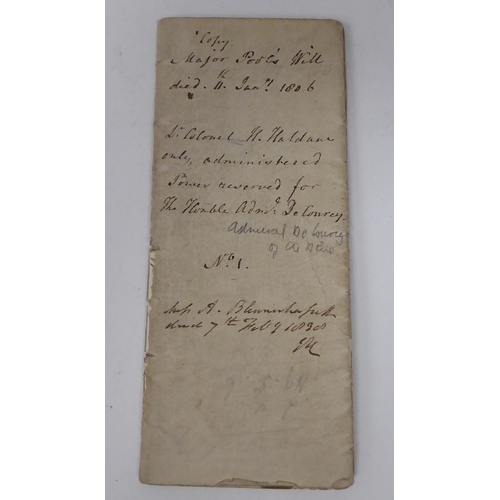 Copy
Major Pool's Will
died. 11th Jany. 1806
Lt. Colonel H. Haldane
only, administered
Power reserved for
The Honble Adml. De Courcy
Admiral De Courcy
of the
No. 1.
A. Blennerhassett
died 7th Feby 1838